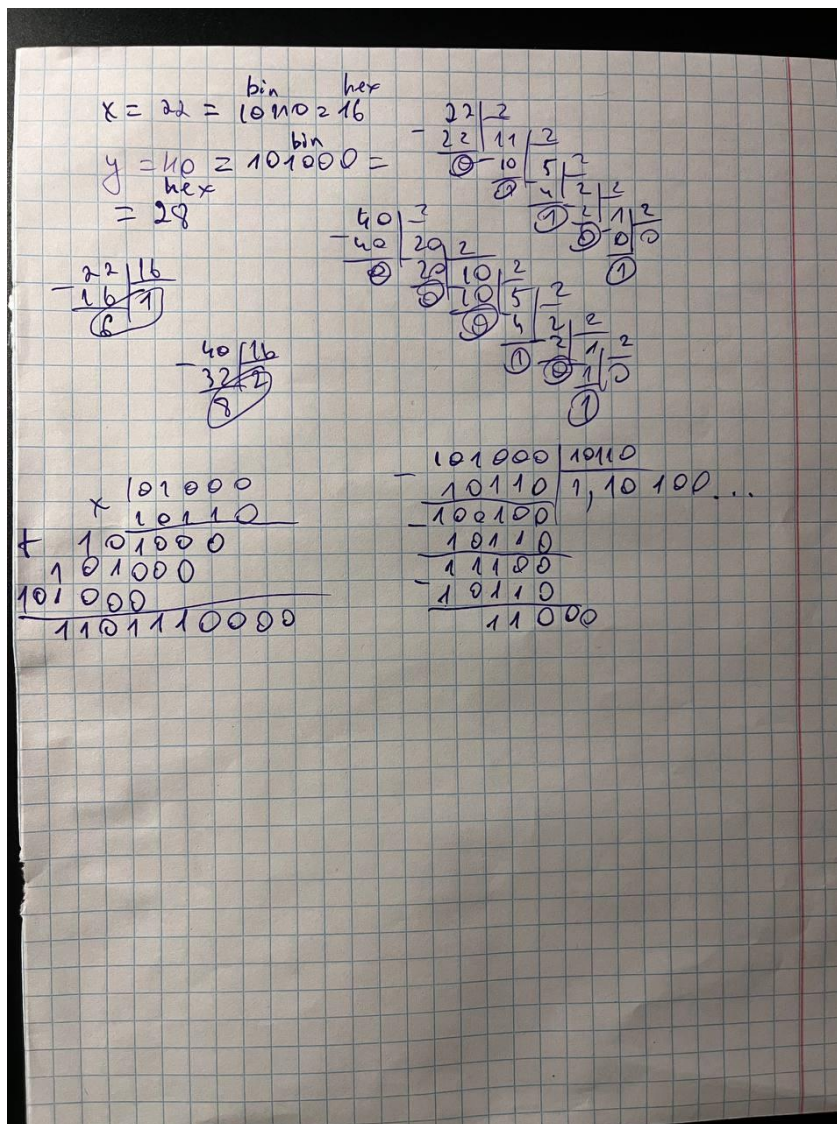 bin hex
x = 22 = 10110 = 16
bin
y = 40 = 101000 =
hex
= 28
22 2
- 22 11 2
0 - 10 5 2
0 4 2 2
1 2 1 2
0 0 0
1
40 2
- 40 20 2
0 20 10 2
0 10 5 2
0 4 2 2
1 2 1 2
0 1 0
1
22 16
- 16 1
6
40 16
- 32 2
8
101000
x 10110
+ 101000
101000
101000
1101110000
101000 10110
- 10110 1,10100...
100100
- 10110
11100
- 10110
11000